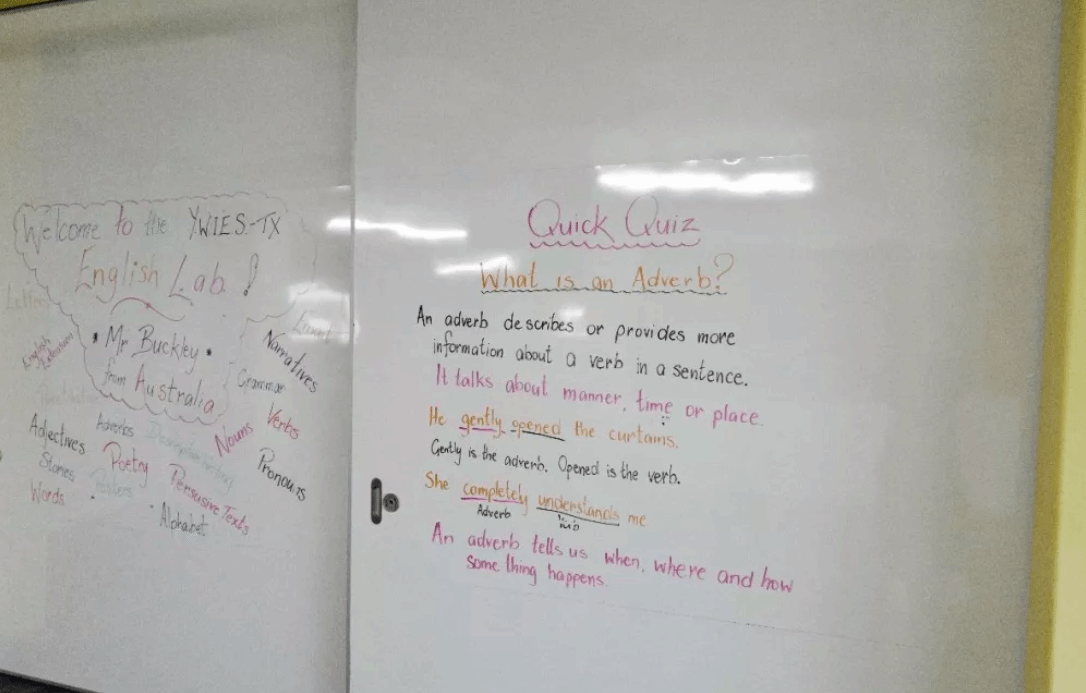 Welcome to the Y.W.I.E.S.-TX
English Lab !
• Mr Buckley •
from Australia
Narratives
Grammar
Verbs
Nouns
Pronouns
Adverbs
Adjectives
Poetry
Stories
Persuasive Texts
Words
Alphabet
Quick Quiz
What is an Adverb?
An adverb describes or provides more
information about a verb in a sentence.
It talks about manner, time or place.
He gently opened the curtains.
Gently is the adverb. Opened is the verb.
She completely understands me
Adverb
An adverb tells us when, where and how
something happens.